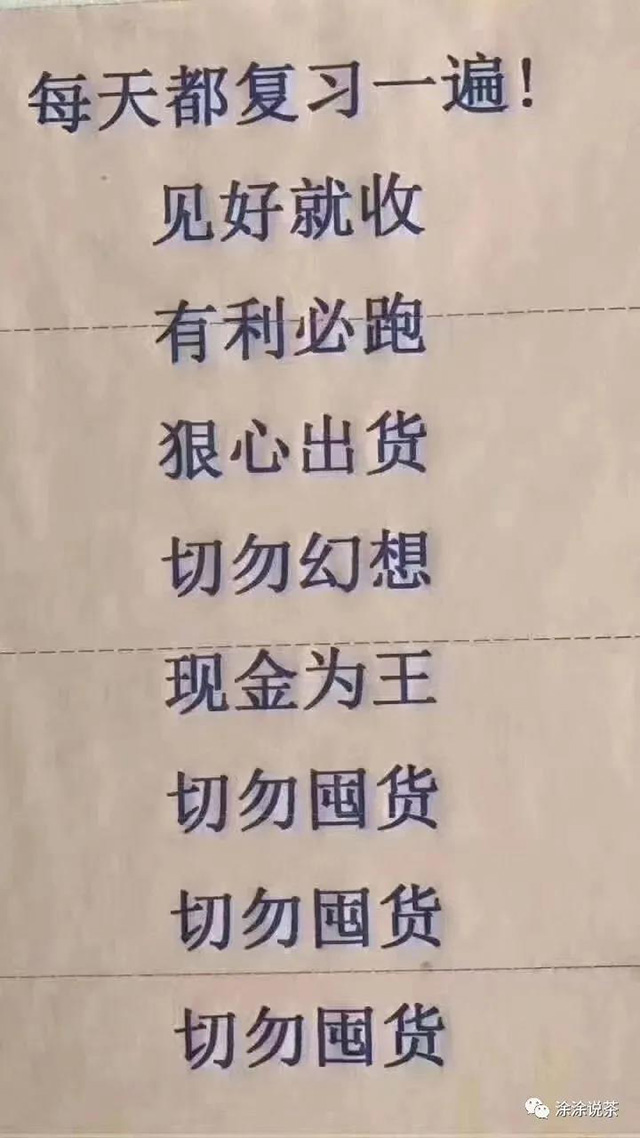 每天都复习一遍!
见好就收
有利必跑
狠心出货
切勿幻想
现金为王
切勿囤货
切勿囤货
切勿囤货
涂涂说茶